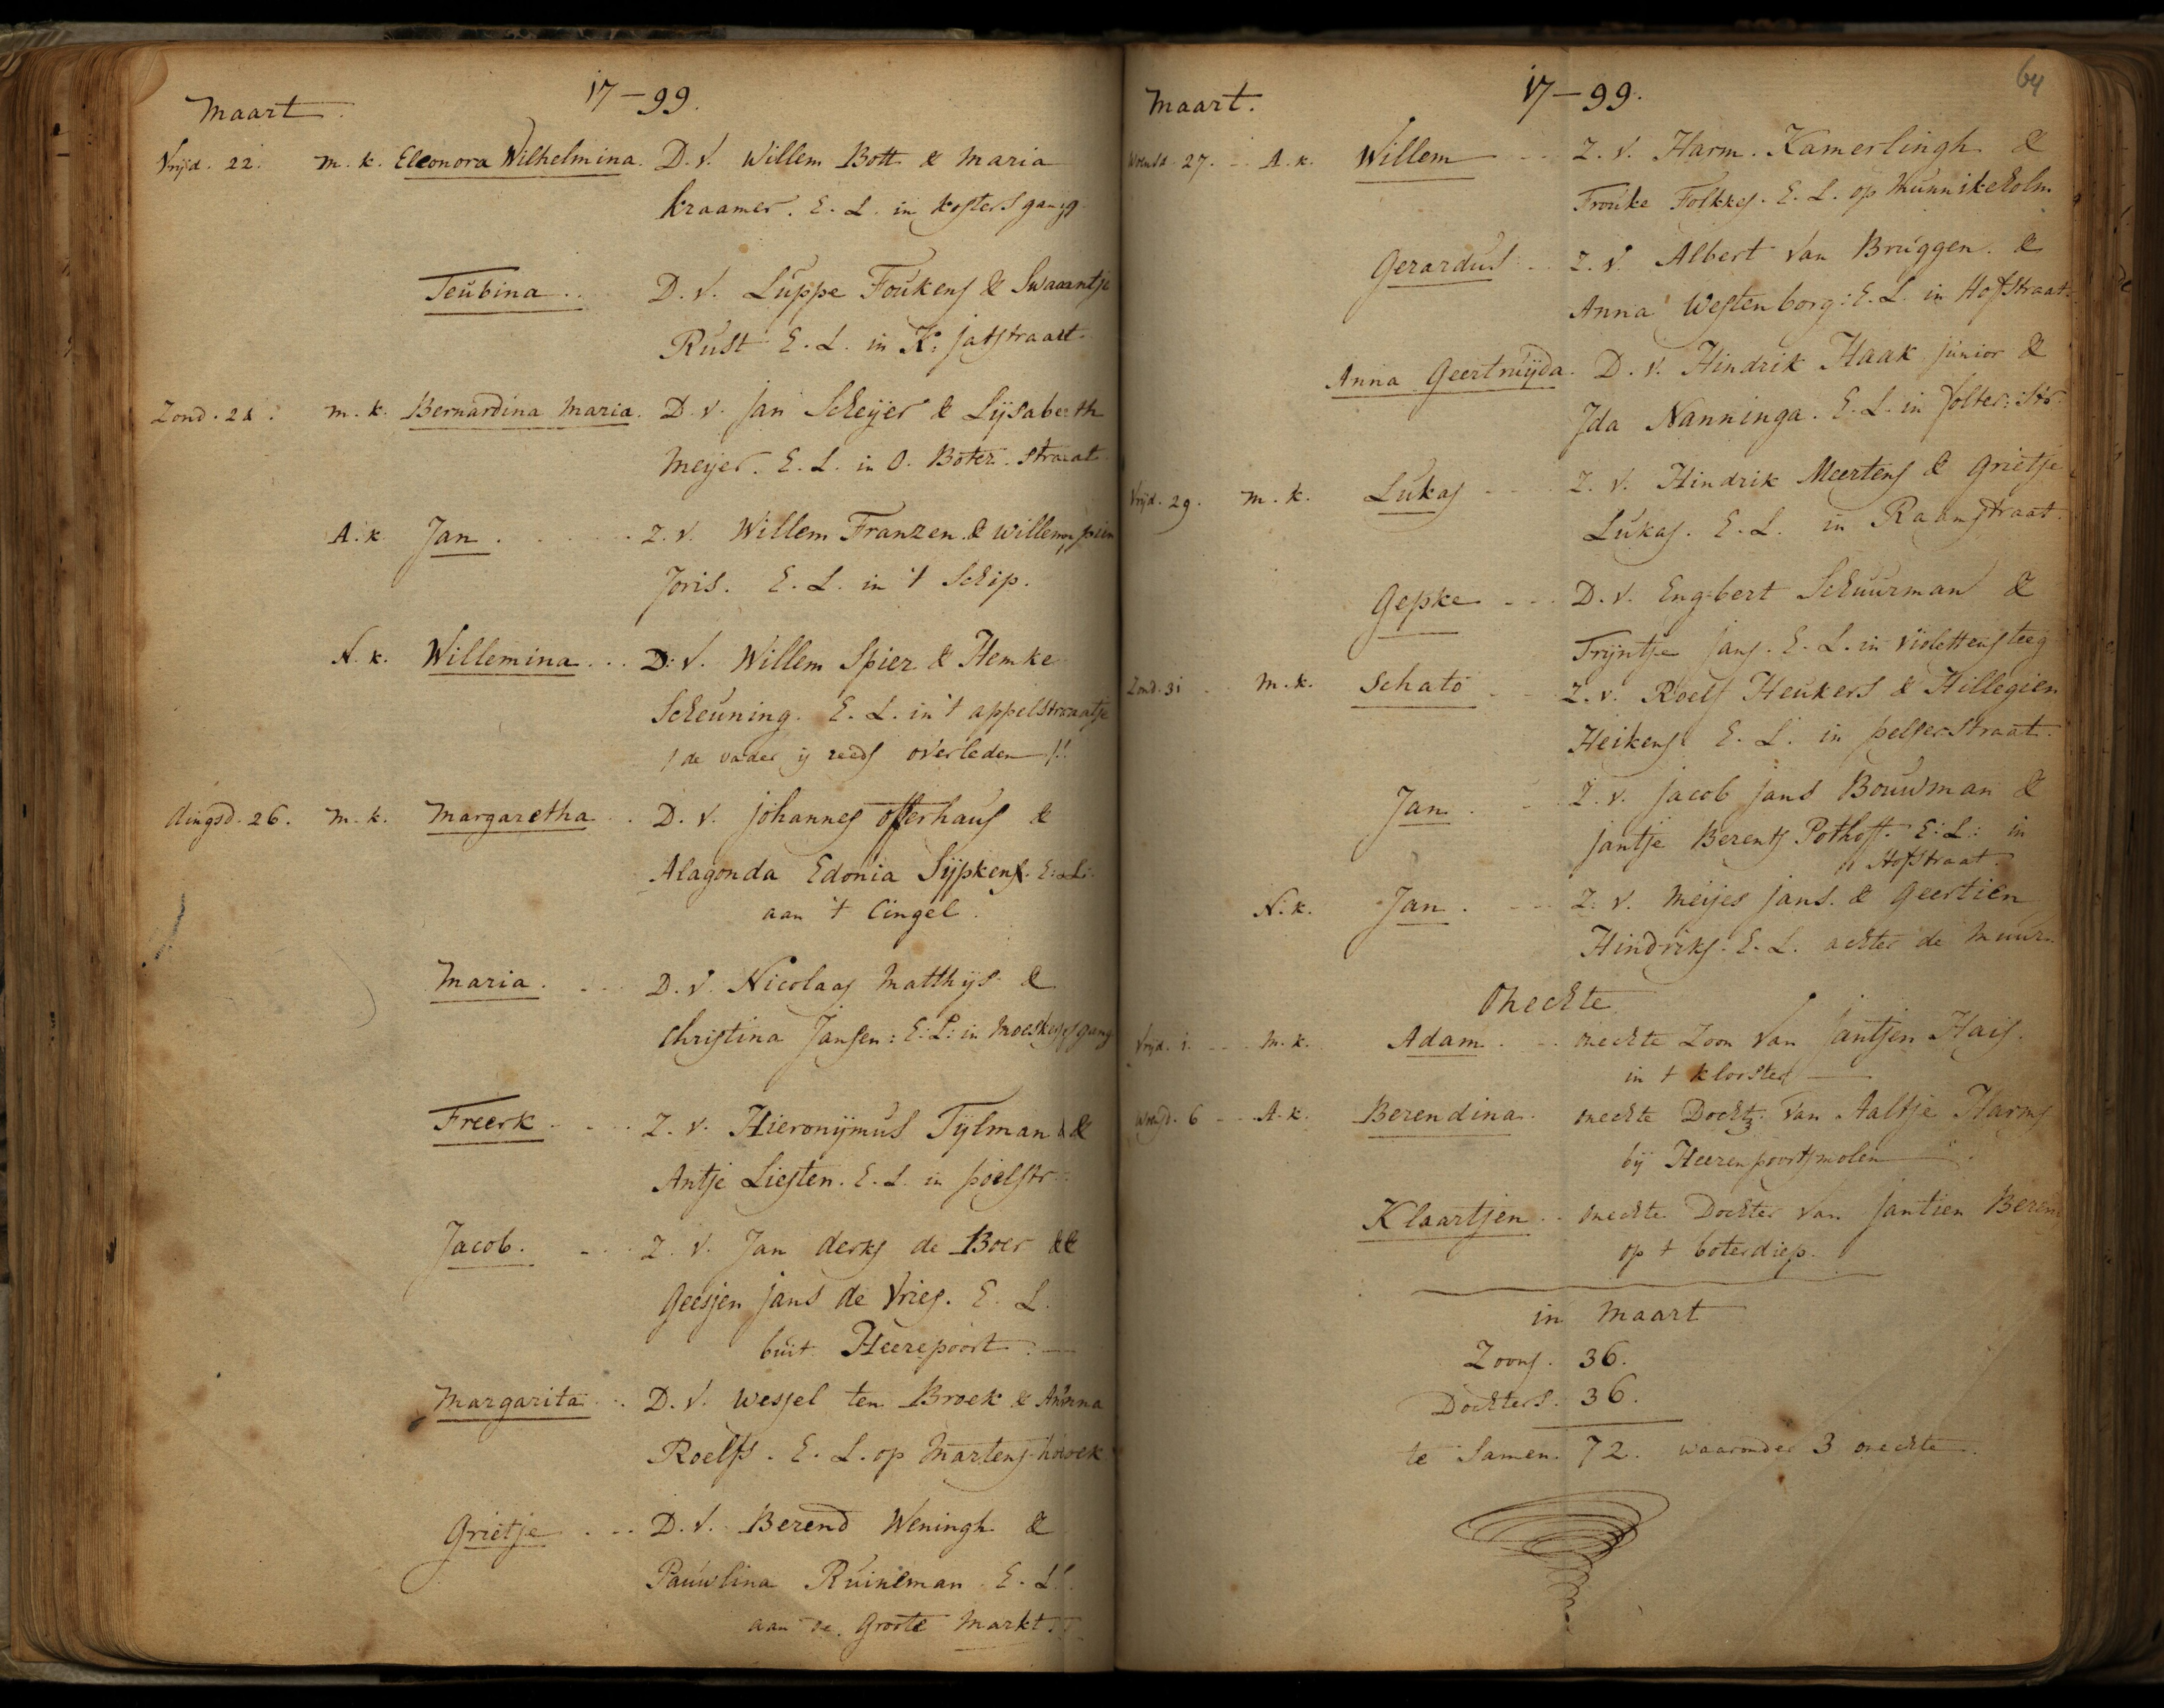 Maart.
17-99.
Vrijd. 22. m. k. Eleonora Wilhelmina. D. v. Willem Bott & Maria
Kraamer. E. L. in Kosters gang
Teubina .. D. v. Luppe Foukens & Swaantje
Rust E. L. in K. Jatstraat
Zond. 24. m. k. Bernardina Maria. D. v. Jan Scheijer & Lijsabeth
Meijer. E. L. in O. Boter. straat
A. k. Jan . Z. v. Willem Franzen & Willempien
Joris. E. L. in 't Schip.
N. k. Willemina ... D. v. Willem Spier & Hemke
Scheuning. E. L. in 't appelstraatje
/ de vader is reeds overleden /!
dingsd. 26. m. k. Margaretha .. D. v. Johannes Offerhaus &
Alagonda Edonia Sijpkens. E. L.
aan 't Cingel.
Maria. ... D. v. Nicolaas Matthijs &
Christina Jansen: E: L: in
Freerk. ... Z. v. Hieronijmus Tijlman &
Antje Liesten. E. L. in poelstr.
Jacob. ... Z. v. Jan derks de Boer &
Geesjen Jans de Vries. E. L.
buit Heerepoort.
Margarita ... D. v. Wessel ten Broek & Anna
Roelfs. E. L. op Martens hoek
Grietje ... D. v. Berend Weningh &
Pauwlina Ruineman E. L.
aan de Groote Markt
64
Maart.
17-99.
Woensd. 27. A. k. Willem .. Z. v. Harm. Kamerlingh &
Frouke Folkkes. E. L. op Munnikeholm
Gerardus .. Z. v. Albert van Bruggen. &
Anna Westenborg: E. L. in Hofstraat.
Anna Geertruijda. D. v. Hindrik Haak junior &
Ida Nanninga. E. L. in folter: str.
Vrijd. 29. m. k. Lukas ... Z. v. Hindrik Meertens & Grietje
Lukas. E. L. in Raamstraat.
Gepke ... D. v. Engbert Schuurman &
Trijntje Jans. E. L. in Violettensteeg
Zond. 31 .. m. k. Schato ... Z. v. Roelf Heukers & Hillegien
Heikens. E. L. in pelserstraat.
Jan. .. Z. v. Jacob Jans Bouwman &
Jantje Berents Pothoff. E: L: in
Hofstraat.
N. k. Jan. ... Z. v. Meijes Jans. & Geertien
Hindriks. E. L. achter de Muur.
Onechte
Vrijd. 1. m. k. Adam .. onechte Zoon van Jantjen Hais.
in 't kloster
woensd. 6 .. A. k. Berendina. onechte Docht. van Aaltje Harms
bij Heerenpoortsmolen
Klaartjen .. onechte Dochter van Jantien Berens
op 't boterdiep.
in Maart
Zoons. 36.
Dochters. 36.
te Samen. 72. waaronder 3 onechte.